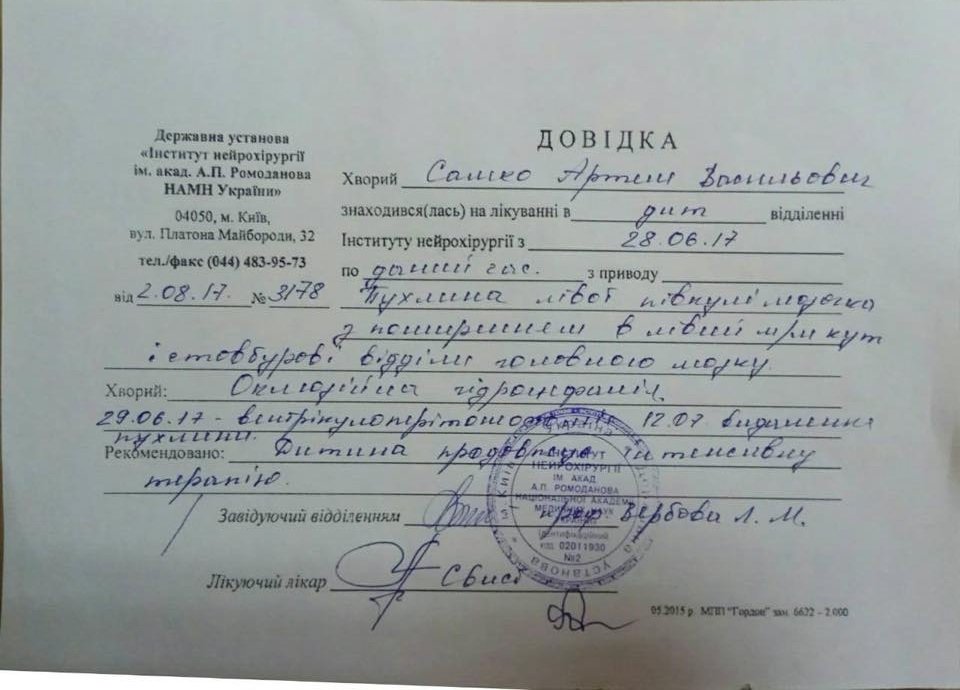 Державна установа
«Інститут нейрохірургії
ім. акад. А.П. Ромоданова
НАМН України»
04050, м. Київ,
вул. Платона Майбороди, 32
тел./факс (044) 483-95-73
від 2.08.17. № 3178
ДОВІДКА
Хворий Артем Васильович
знаходився(лась) на лікуванні в дит відділенні
Інституту нейрохірургії з 28.06.17
по даний час. з приводу
Пухлина лівої півкулі мозочка
з поширенням в лівий кут
і стовбурові відділи головного мозку.
Хворий: Оклюзійна гідроцефалія.
29.06.17 - 12.07 видалення
пухлини.
Рекомендовано: Дитина продовжує інтенсивну
терапію.
Завідуючий відділенням проф. Вербова Л. М.
Лікуючий лікар
УКРАЇНА
м. Київ
Державна установа
ІНСТИТУТ
НЕЙРОХІРУРГІЇ
ІМ. АКАД
А.П. РОМОДАНОВА
НАЦІОНАЛЬНОЇ АКАДЕМІЇ
МЕДИЧНИХ НАУК
УКРАЇНИ
Ідентифікаційний
код 02011930
№2
05.2015 р. МПП "Гордон" зам. 6622 - 2 000